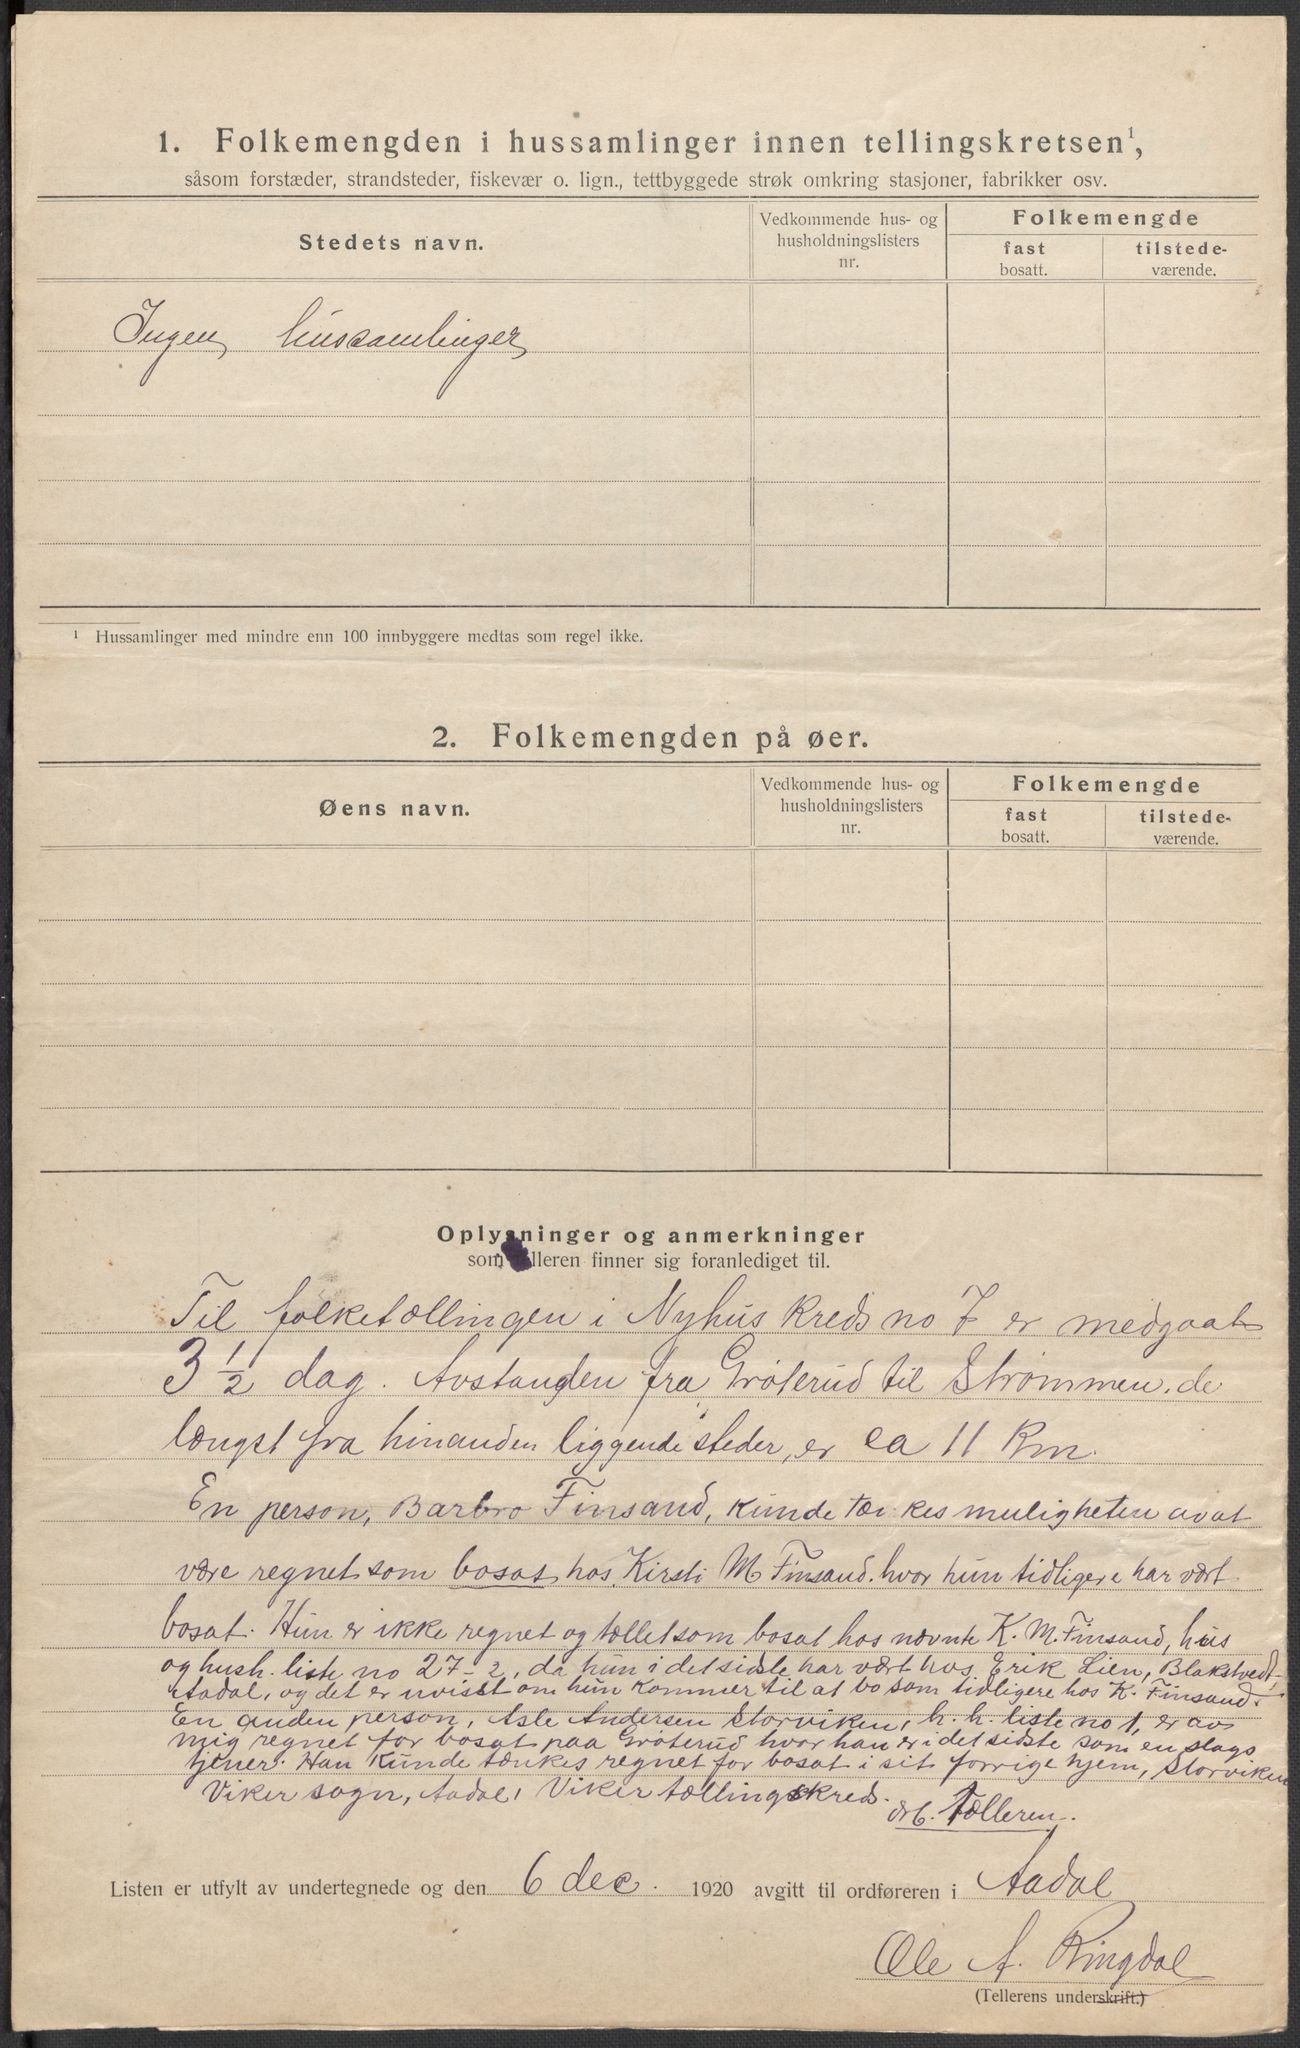 1. Folkemengden i hussamlinger innen tellingskretsen¹,
såsom forstæder, strandsteder, fiskevær o. lign., tettbyggede strøk omkring stasjoner, fabrikker osv.
Stedets navn.
Vedkommende hus- og
husholdningslisters
nr.
Folkemengde
fast
bosatt.
tilstede-
værende.
Ingen hussamlinger
¹ Hussamlinger med mindre enn 100 innbyggere medtas som regel ikke.
2. Folkemengden på øer.
Øens navn.
Vedkommende hus- og
husholdningslisters
nr.
Folkemengde
fast
bosatt.
tilstede-
værende.
Oplysninger og anmerkninger
som telleren finner sig foranlediget til.
Til folketællingen i Nyhus kreds no 7 er medgaat
3 1/2 dag. Avstanden fra Grøterud til Strømmen, de
længst fra hinanden liggende steder, er ca 11 km.
En person, Barbro Finsand, kunde tænkes muligheten av at
være regnet som bosat hos Kirsti M Finsand. hvor hun tidligere har vært
bosat. Hun er ikke regnet og tællet som bosat hos nævnte K. M. Finsand, hus
og hush. liste no 27-2, da hun i det sidste har vært hos Erik Lien, Blakstvedt,
Aadal, og det er uvisst om hun kommer til at bo som tidligere hos K. Finsand.
En anden person, Asle Andersen Storviken, h. h. liste no 1, er av
mig regnet for bosat paa Grøterud hvor han er i det sidste som en slags
tjener. Han kunde tænkes regnet for bosat i sit forrige hjem, Storviken
Viker sogn, Aadal, Viker tællingskreds.
Tælleren.
Listen er utfylt av undertegnede og den 6 dec. 1920 avgitt til ordføreren i Aadal
Ole A. Ringdal
(Tellerens underskrift.)